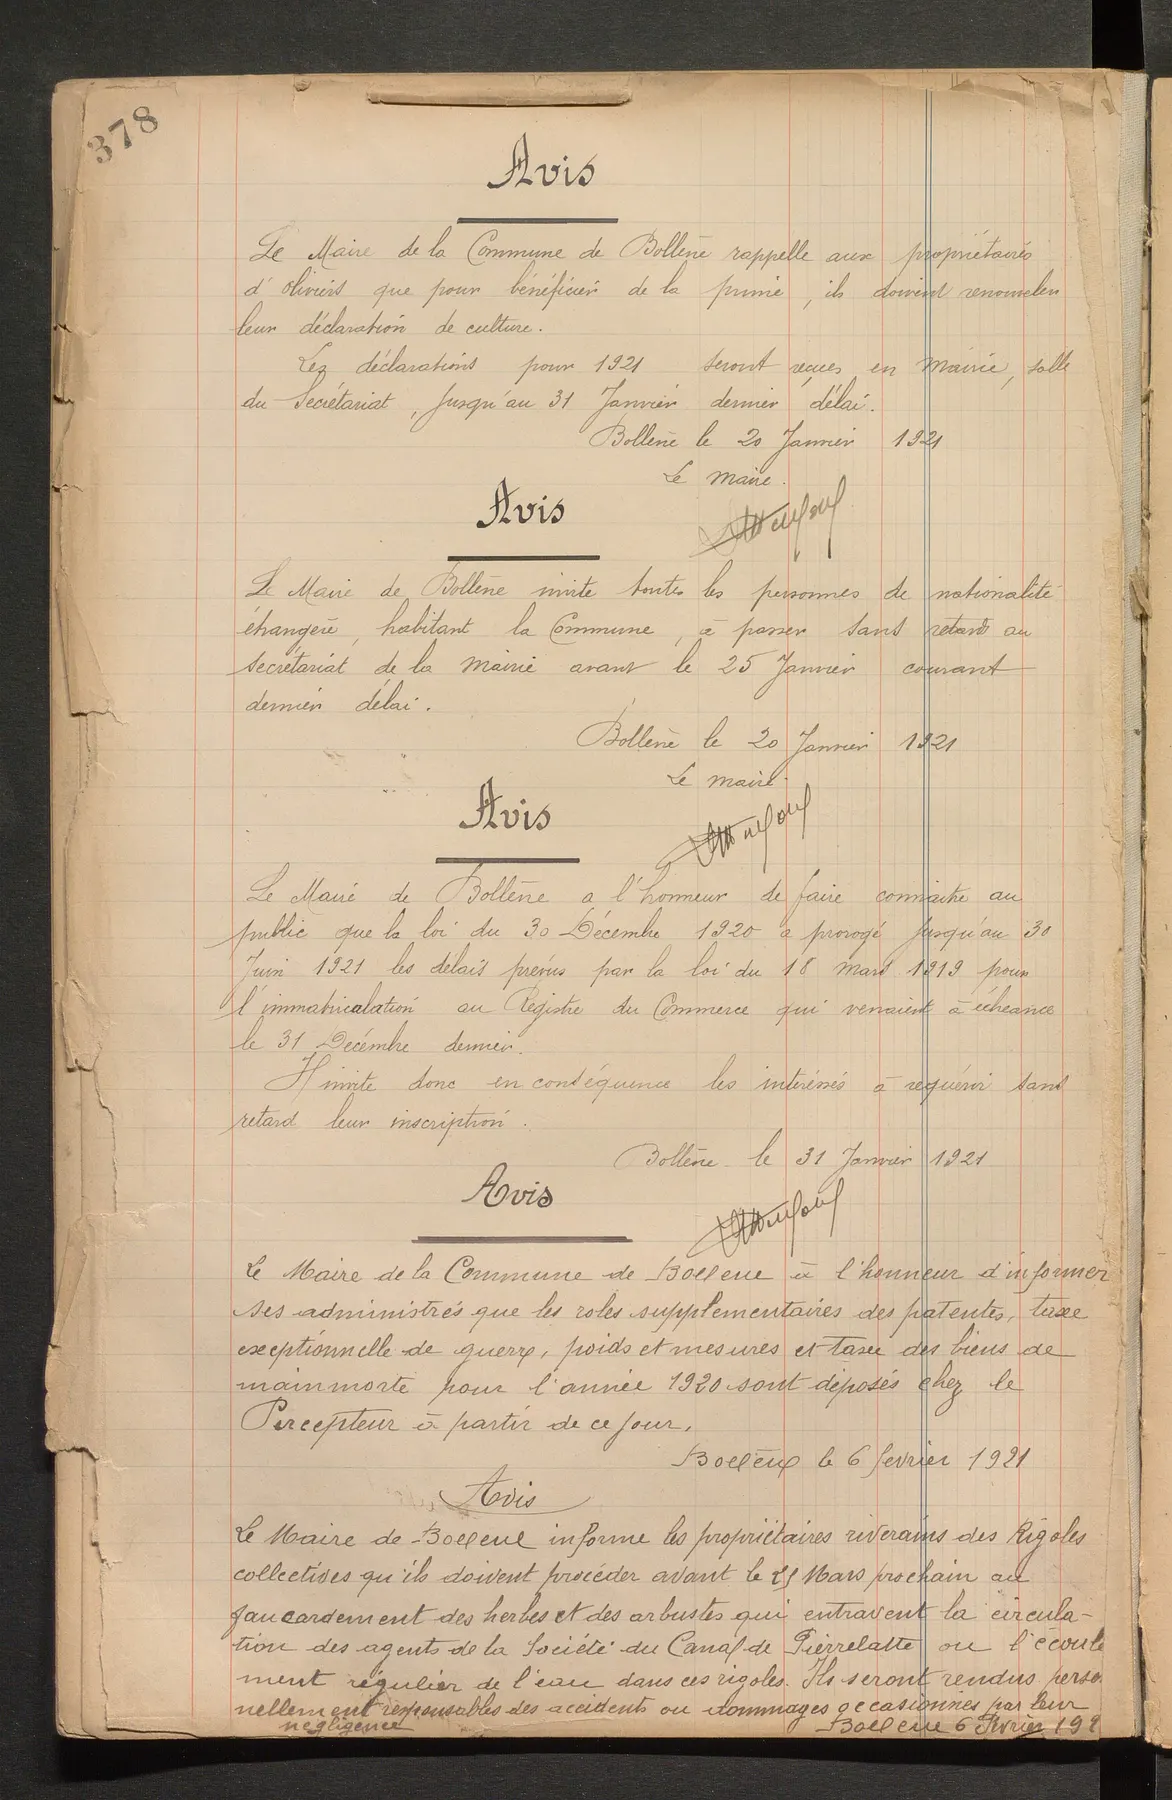 378
Avis
Le Maire de la Commune de Bollène rappelle aux propriétaires
d'oliviers que pour bénéficier de la prime, ils doivent renouveler
leur déclaration de culture.
Les déclarations pour 1921 seront reçues en Mairie, salle
du Secrétariat, jusqu'au 31 Janvier dernier délai.
Bollène le 20 Janvier 1921
Le Maire.
Avis
Le Maire de Bollène invite toutes les personnes de nationalité
étrangère, habitant la Commune, à passer sans retard au
secrétariat de la Mairie avant le 25 Janvier courant
dernier délai.
Bollène le 20 Janvier 1921
Le Maire.
Avis
Le Maire de Bollène a l'honneur de faire connaître au
public que la loi du 30 Décembre 1920 a prorogé jusqu'au 30
Juin 1921 les délais prévus par la loi du 18 Mars 1919 pour
l'immatriculation au Registre du Commerce qui venaient à échéance
le 31 Décembre dernier.
Il invite donc en conséquence les intéressés à requérir sans
retard leur inscription.
Bollène le 31 Janvier 1921
Avis
Le Maire de la Commune de Bollene à l'honneur d'informer
ses administrés que les roles supplementaires des patentes, taxe
exceptionnelle de guerre, poids et mesures et taxe des biens de
mainmorte pour l'année 1920 sont déposés chez le
Percepteur à partir de ce jour.
Bollène le 6 fevrier 1921
Avis
Le Maire de Bollene informe les propriétaires riverains des Rigoles
collectives qu'ils doivent procéder avant le Mars prochain au
faucardement des herbes et des arbustes qui entravent la circula-
tion des agents de la Société du Canal de Pierrelatte ou l'écoule
ment régulier de l'eau dans ces rigoles. Ils seront rendus perso
nellement responsables des accidents ou dommages occasionnés par leur
négligence
Bollene 6 Février 192